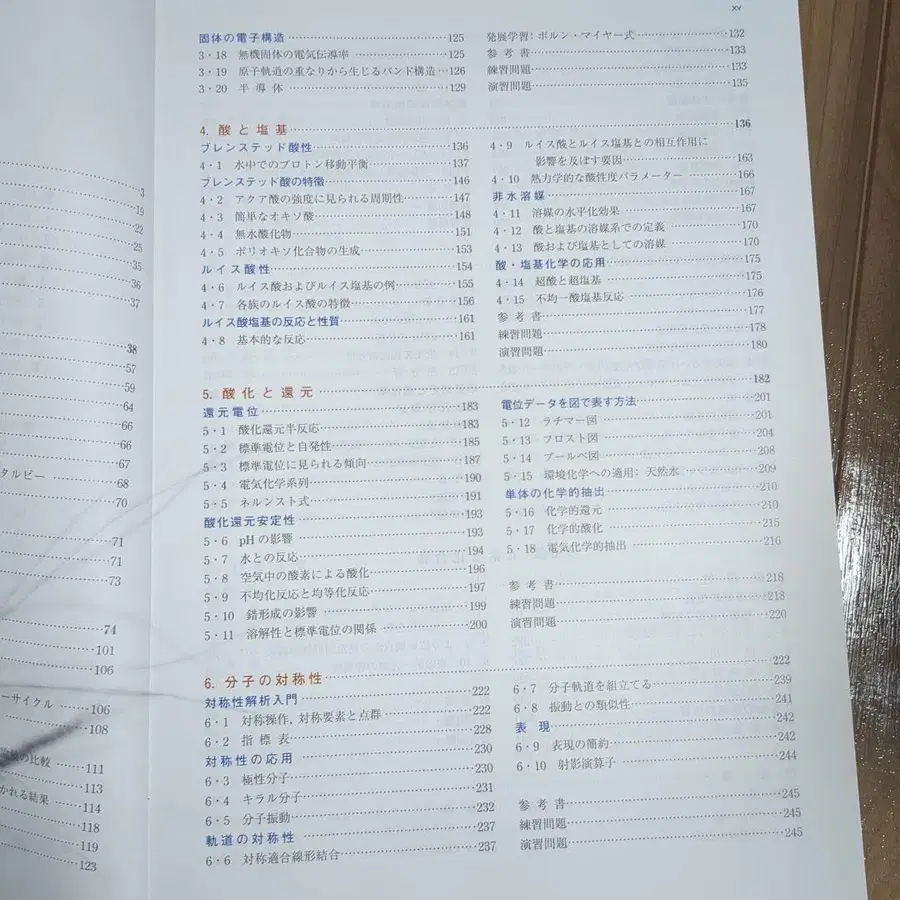 3
19
22
25
35
36
37
38
57
59
64
66
66
67
タルピー ……68
70
71
71
73
74
101
106
ーサイクル ……106
108
の比較 ……111
113
かれる結果 ……114
118
119
123
xv
固体の電子構造……125
3・18 無機固体の電気伝導率……125
3・19 原子軌道の重なりから生じるバンド構造…126
3・20 半導体……129
発展学習：ボルン・マイヤー式……132
参考書……133
練習問題……133
演習問題……135
4. 酸と塩基……136
ブレンステッド酸性……136
4・1 水中でのプロトン移動平衡……137
ブレンステッド酸の特徴……146
4・2 アクア酸の強度に見られる周期性……147
4・3 簡単なオキソ酸……148
4・4 無水酸化物……151
4・5 ポリオキソ化合物の生成……153
ルイス酸性……154
4・6 ルイス酸およびルイス塩基の例……155
4・7 各族のルイス酸の特徴……156
ルイス酸塩基の反応と性質……161
4・8 基本的な反応……161
4・9 ルイス酸とルイス塩基との相互作用に
影響を及ぼす要因……163
4・10 熱力学的な酸性度パラメーター……166
非水溶媒……167
4・11 溶媒の水平化効果……167
4・12 酸と塩基の溶媒系での定義……170
4・13 酸および塩基としての溶媒……170
酸・塩基化学の応用……175
4・14 超酸と超塩基……175
4・15 不均一酸塩基反応……176
参考書……177
練習問題……178
演習問題……180
5. 酸化と還元……182
還元電位……183
5・1 酸化還元半反応……183
5・2 標準電位と自発性……185
5・3 標準電位に見られる傾向……187
5・4 電気化学系列……190
5・5 ネルンスト式……191
酸化還元安定性……193
5・6 pHの影響……193
5・7 水との反応……194
5・8 空気中の酸素による酸化……196
5・9 不均化反応と均等化反応……197
5・10 錯形成の影響……199
5・11 溶解性と標準電位の関係……200
電位データを図で表す方法……201
5・12 ラチマー図……201
5・13 フロスト図……204
5・14 プールベ図……208
5・15 環境化学への適用：天然水……209
単体の化学的抽出……210
5・16 化学的還元……210
5・17 化学的酸化……215
5・18 電気化学的抽出……216
参考書……218
練習問題……218
演習問題……220
6. 分子の対称性……222
対称性解析入門……222
6・1 対称操作，対称要素と点群……222
6・2 指標表……228
対称性の応用……230
6・3 極性分子……230
6・4 キラル分子……231
6・5 分子振動……232
軌道の対称性……237
6・6 対称適合線形結合……237
6・7 分子軌道を組立てる……239
6・8 振動との類似性……241
表現……242
6・9 表現の簡約……242
6・10 射影演算子……244
参考書……245
練習問題……245
演習問題……245